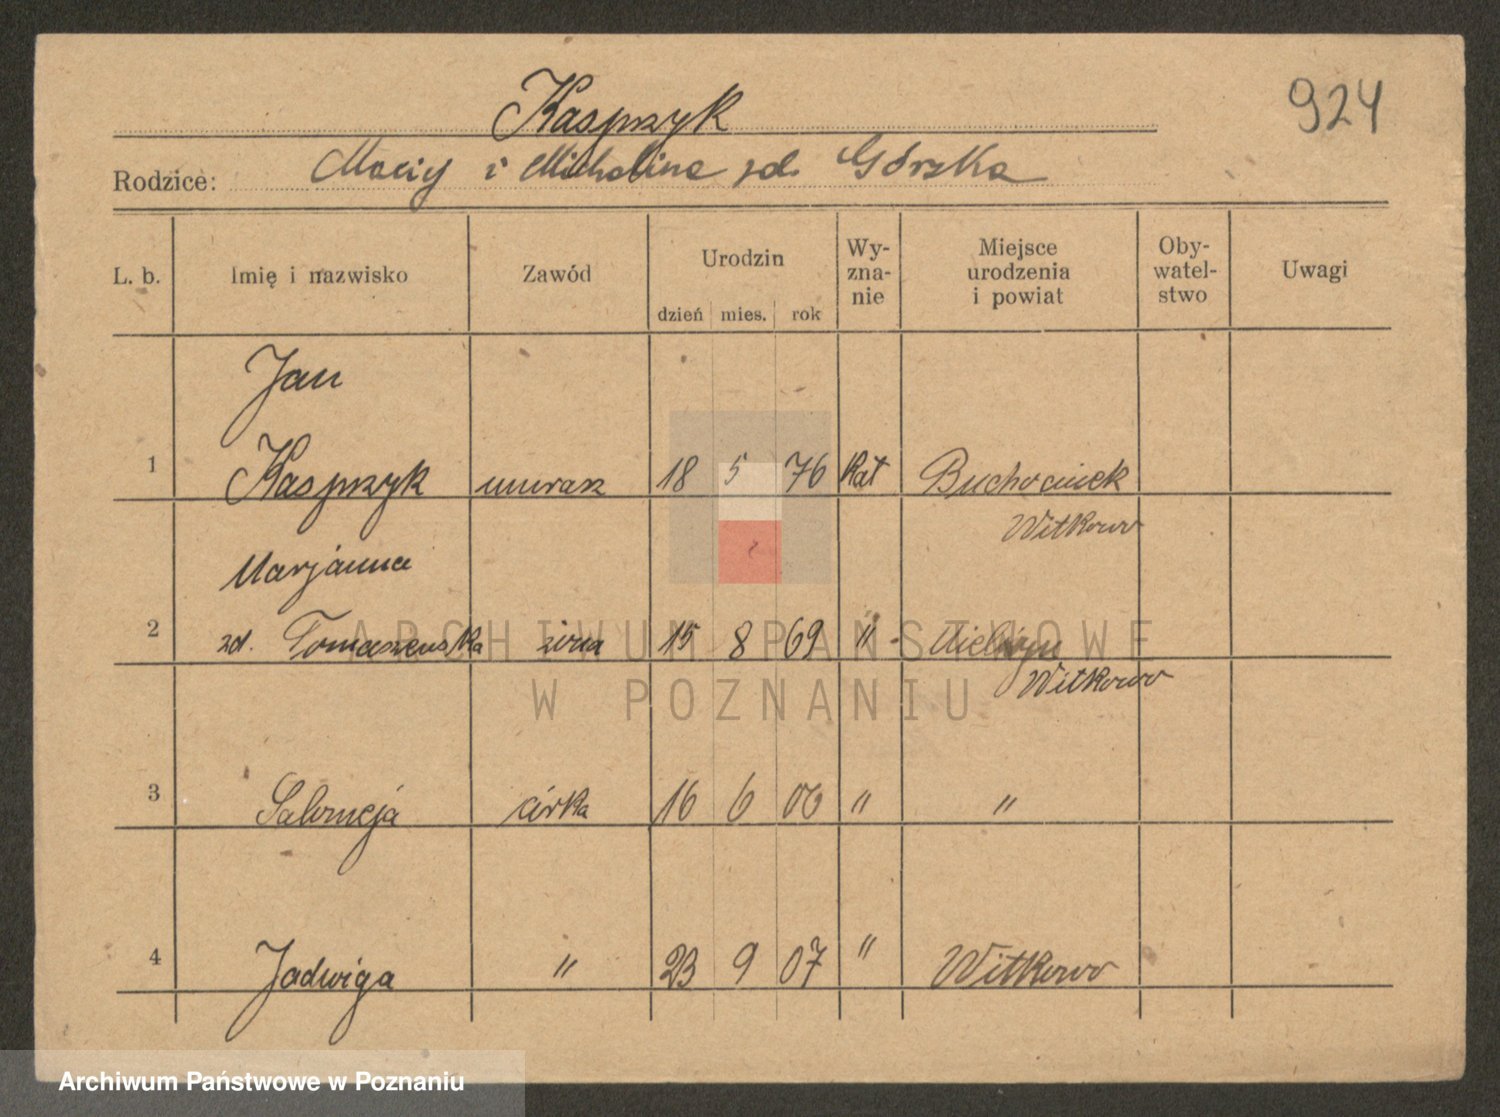 Kasprzyk
924
Rodzice: Maciej i Michalina zd. Górzka
L. b. Imię i nazwisko Zawód Urodzin dzień mies. rok Wy-zna-nie Miejsce urodzenia i powiat Oby-watel-stwo Uwagi
Jan
1 Kasprzyk murarz 18 5 76 Kat
Witkowo
Marjanna
2 zd. Tomaszewska żona 15 8 69 "
Witkowo
3 Salomeja córka 16 6 06 " "
4 Jadwiga " 23 9 07 " Witkowo
ARCHIWUM PAŃSTWOWE
W POZNANIU
Archiwum Państwowe w Poznaniu